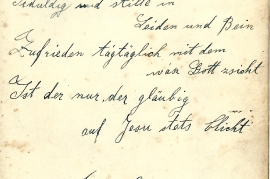 Geduldig und stille in
Leiden und Pein
Zufrieden tagtäglich mit dem
was Gott
Ist der nur, der gläubig
auf Jesu stets blickt